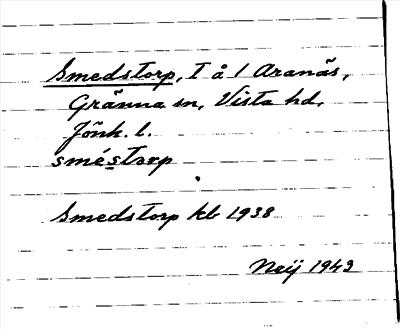 Smedstorp, T å / Aranäs,
Gränna sn, Vista hd,
Jönk. l.
sméstorp
Smedstorp kb 1938
Neij 1943